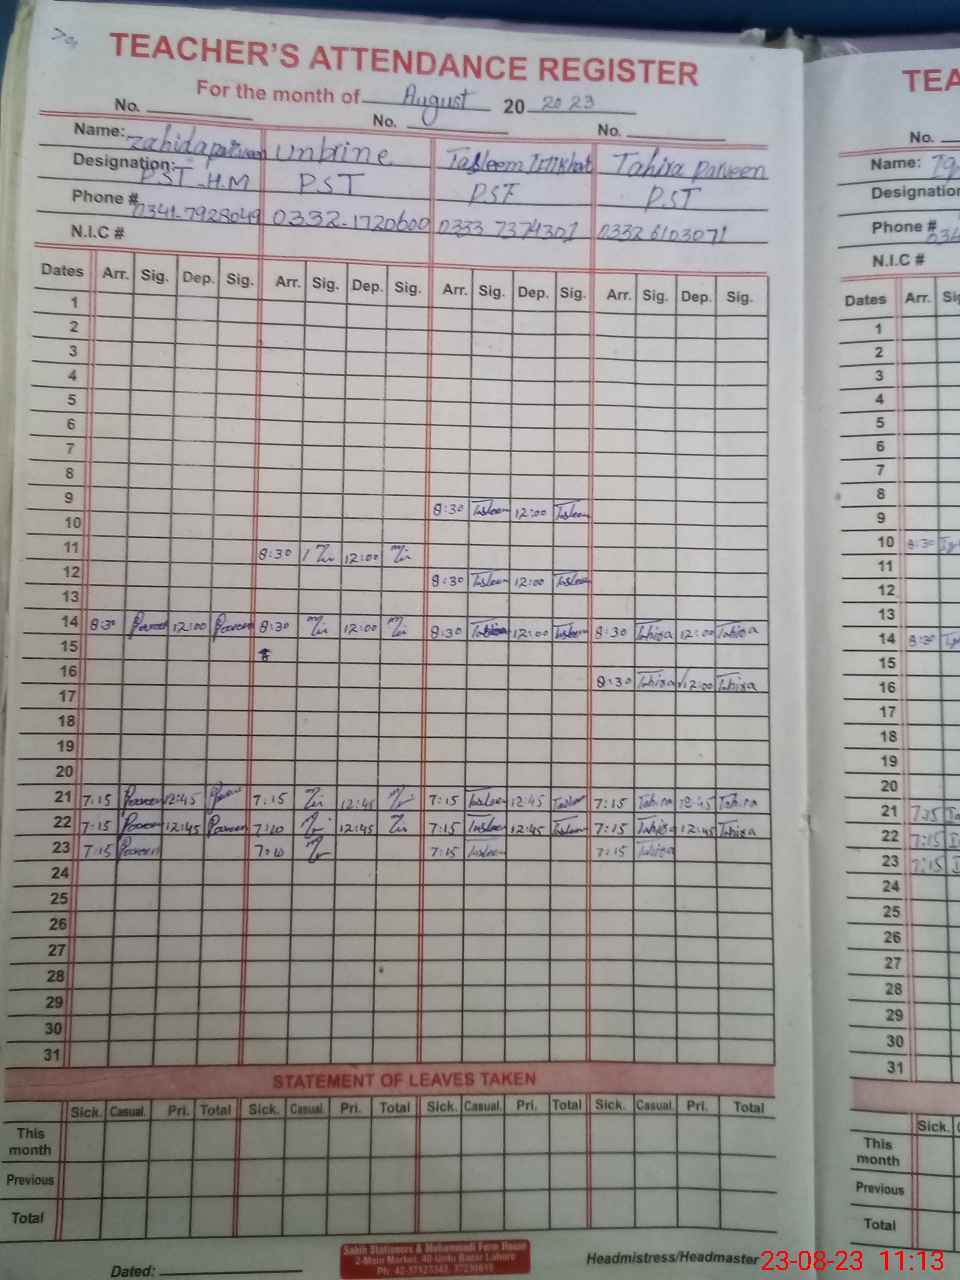 TEACHER'S ATTENDANCE REGISTER
For the month of August 20 2023
No. No. No.
Name: Zahida parveen Unbrine Tasleem Tahira Parveen
Designation: PST H.M PST PST PST
Phone # 0341-7928049 0332-1720600 0333 7374301 0332 6103071
N.I.C #
Dates Arr. Sig. Dep. Sig. Arr. Sig. Dep. Sig. Arr. Sig. Dep. Sig. Arr. Sig. Dep. Sig.
1
2
3
4
5
6
7
8
9 8:30 Tasleem 12:00 Tasleem
10
11 8:30 12:00
12 8:30 Tasleem 12:00 Tasleem
13
14 8:30 Parveen 12:00 Parveen 8:30 12:00 8:30 Tasleem 12:00 Tasleem 8:30 Tahira 12:00 Tahira
15
16 8:30 Tahira 12:00 Tahira
17
18
19
20
21 7:15 Parveen 12:45 Parveen 7:15 12:45 7:15 Tasleem 12:45 Tasleem 7:15 Tahira 12:45 Tahira
22 7:15 Parveen 12:45 Parveen 7:10 12:45 7:15 Tasleem 12:45 Tasleem 7:15 Tahira 12:45 Tahira
23 7:15 Parveen 7:10 7:15 Tasleem 7:15 Tahira
24
25
26
27
28
29
30
31
STATEMENT OF LEAVES TAKEN
Sick. Casual. Pri. Total Sick. Casual. Pri. Total Sick. Casual. Pri. Total Sick. Casual. Pri. Total
This month
Previous
Total
Dated:
Sabih Stationers & Mohammadi Form House
2-Main Market, 40-Urdu Bazar Lahore
Headmistress/Headmaster
TEA
No.
Name:
Designation
Phone # 034
N.I.C #
Dates Arr.
1
2
3
4
5
6
7
8
9
10 8:30
11
12
13
14 8:30
15
16
17
18
19
20
21 7:15
22 7:15
23 7:15
24
25
26
27
28
29
30
31
Sick.
This month
Previous
Total
23-08-23 11:13